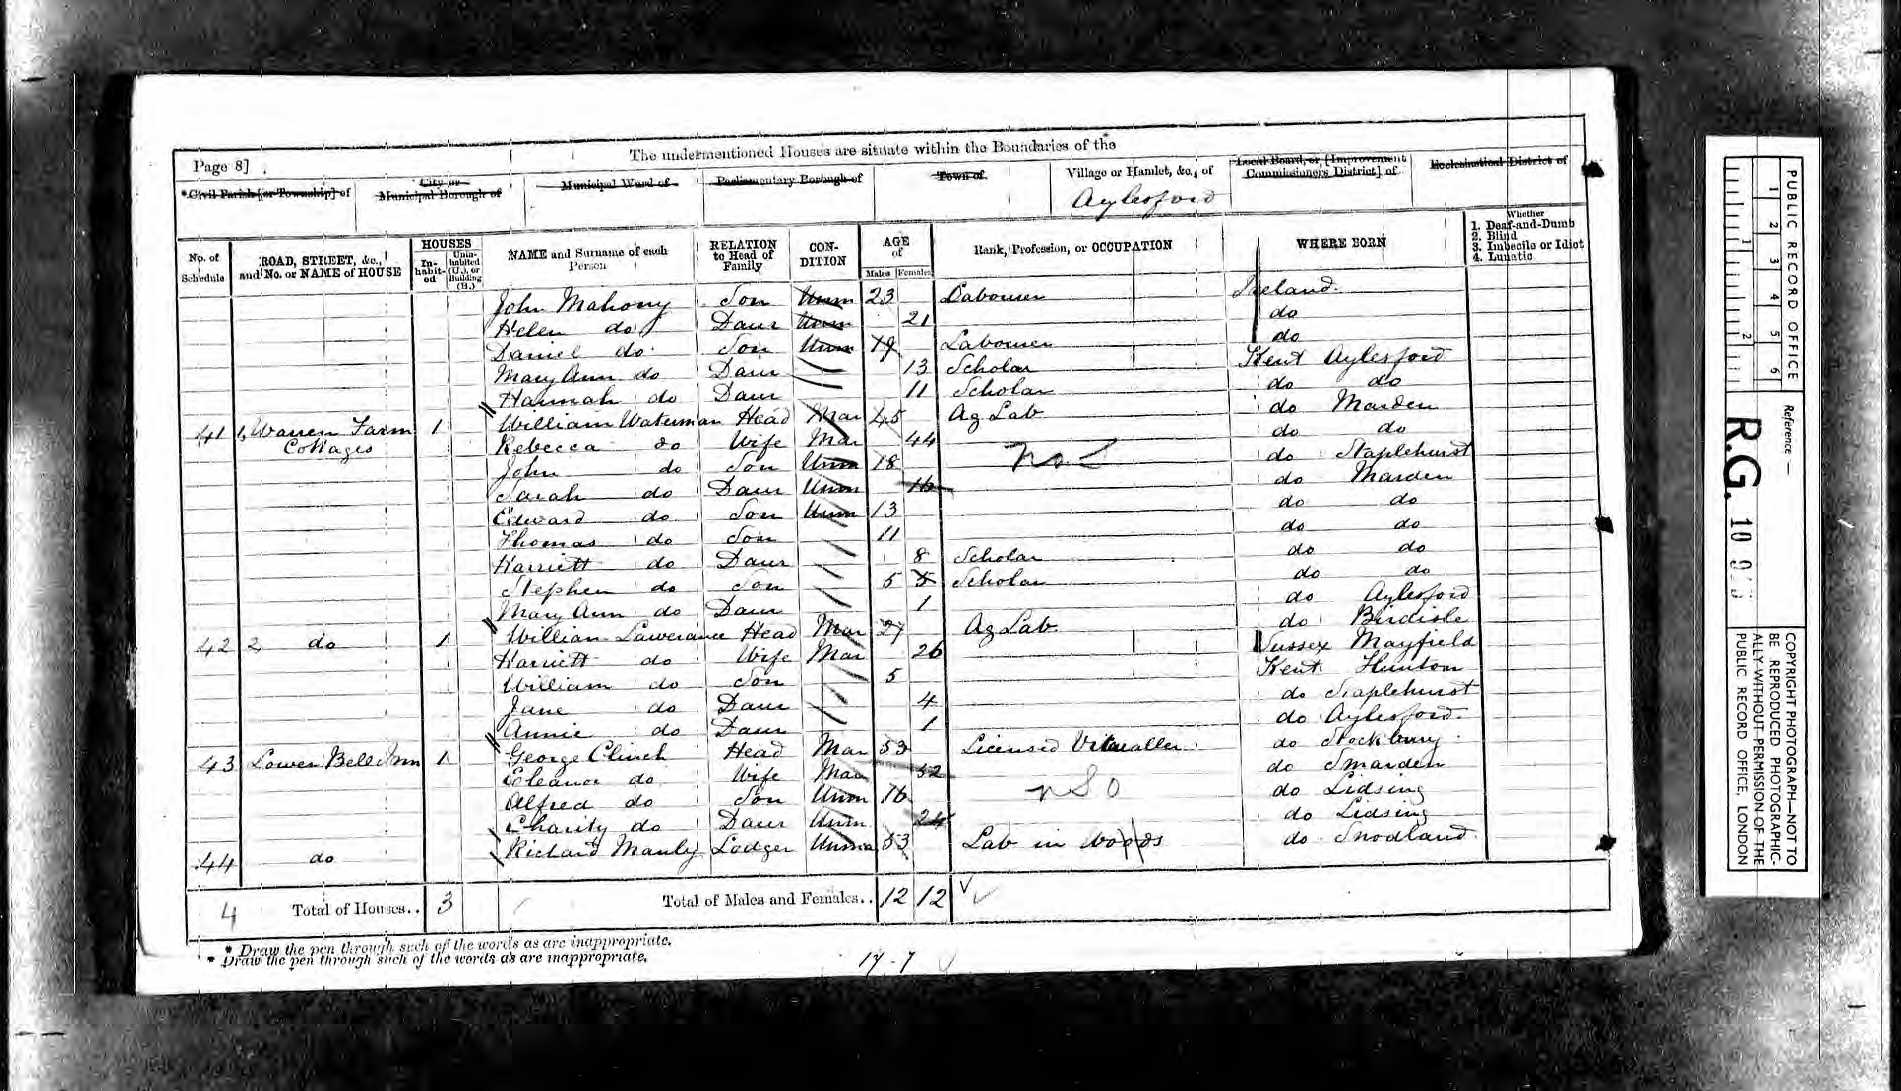 Page 8]
The undermentioned Houses are situate within the Boundaries of the
*Civil Parish [or Township] of
City or Municipal Borough of
Municipal Ward of
Parliamentary Borough of
Town of
Village or Hamlet, &c., of
Aylesford
Local Board, or [Improvement Commissioners District] of
Ecclesiastical District of
No. of Schedule
ROAD, STREET, &c., and No. or NAME of HOUSE
HOUSES
In-habit-ed
Unin-habited (U.), or Building (B.)
NAME and Surname of each Person
RELATION to Head of Family
CON-DITION
AGE of
Males Females
Rank, Profession, or OCCUPATION
WHERE BORN
Whether
1. Deaf-and-Dumb
2. Blind
3. Imbecile or Idiot
4. Lunatic
John Mahony Son Unm 23 Labourer Ireland
Helen do Daur Unm 21 do
Daniel do Son Unm 19 Labourer do
Mary Ann do Daur 13 Scholar Kent Aylesford
Hannah do Daur 11 Scholar do do
41 1, Warren Farm Cottages 1 William Waterman Head Mar 45 Ag Lab do Marden
Rebecca do Wife Mar 44 do do
John do Son Unm 18 do Staplehurst
Sarah do Daur Unm 16 do Marden
Edward do Son Unm 13 do do
Thomas do Son 11 do do
Harriett do Daur 8 Scholar do do
Stephen do Son 5 5 Scholar do do
Mary Ann do Daur 1 do Aylesford
42 2 do 1 William Lawerance Head Mar 27 Ag Lab do
Harriett do Wife Mar 26 Sussex Mayfield
William do Son 5 Kent Hunton
Jane do Daur 4 do Staplehurst
Annie do Daur 1 do Aylesford
43 Lower Bell Inn 1 George Clinch Head Mar 53 Licensed Victualler do Stockbury
Eleanor do Wife Mar 52 do Smarden
Alfred do Son Unm 16 do Lidsing
Charity do Daur Unm 24 do Lidsing
44 do Richard Manly Lodger Unm 53 Lab in Woods do Snodland
4 Total of Houses.. 3 Total of Males and Females.. 12 12
* Draw the pen through such of the words as are inappropriate.
* Draw the pen through such of the words as are inappropriate.
17-7
PUBLIC RECORD OFFICE
1 2 3 4 5 6
1 2
Reference :—
R.G. 10
COPYRIGHT PHOTOGRAPH—NOT TO
BE REPRODUCED PHOTOGRAPHIC-
ALLY WITHOUT PERMISSION OF THE
PUBLIC RECORD OFFICE, LONDON